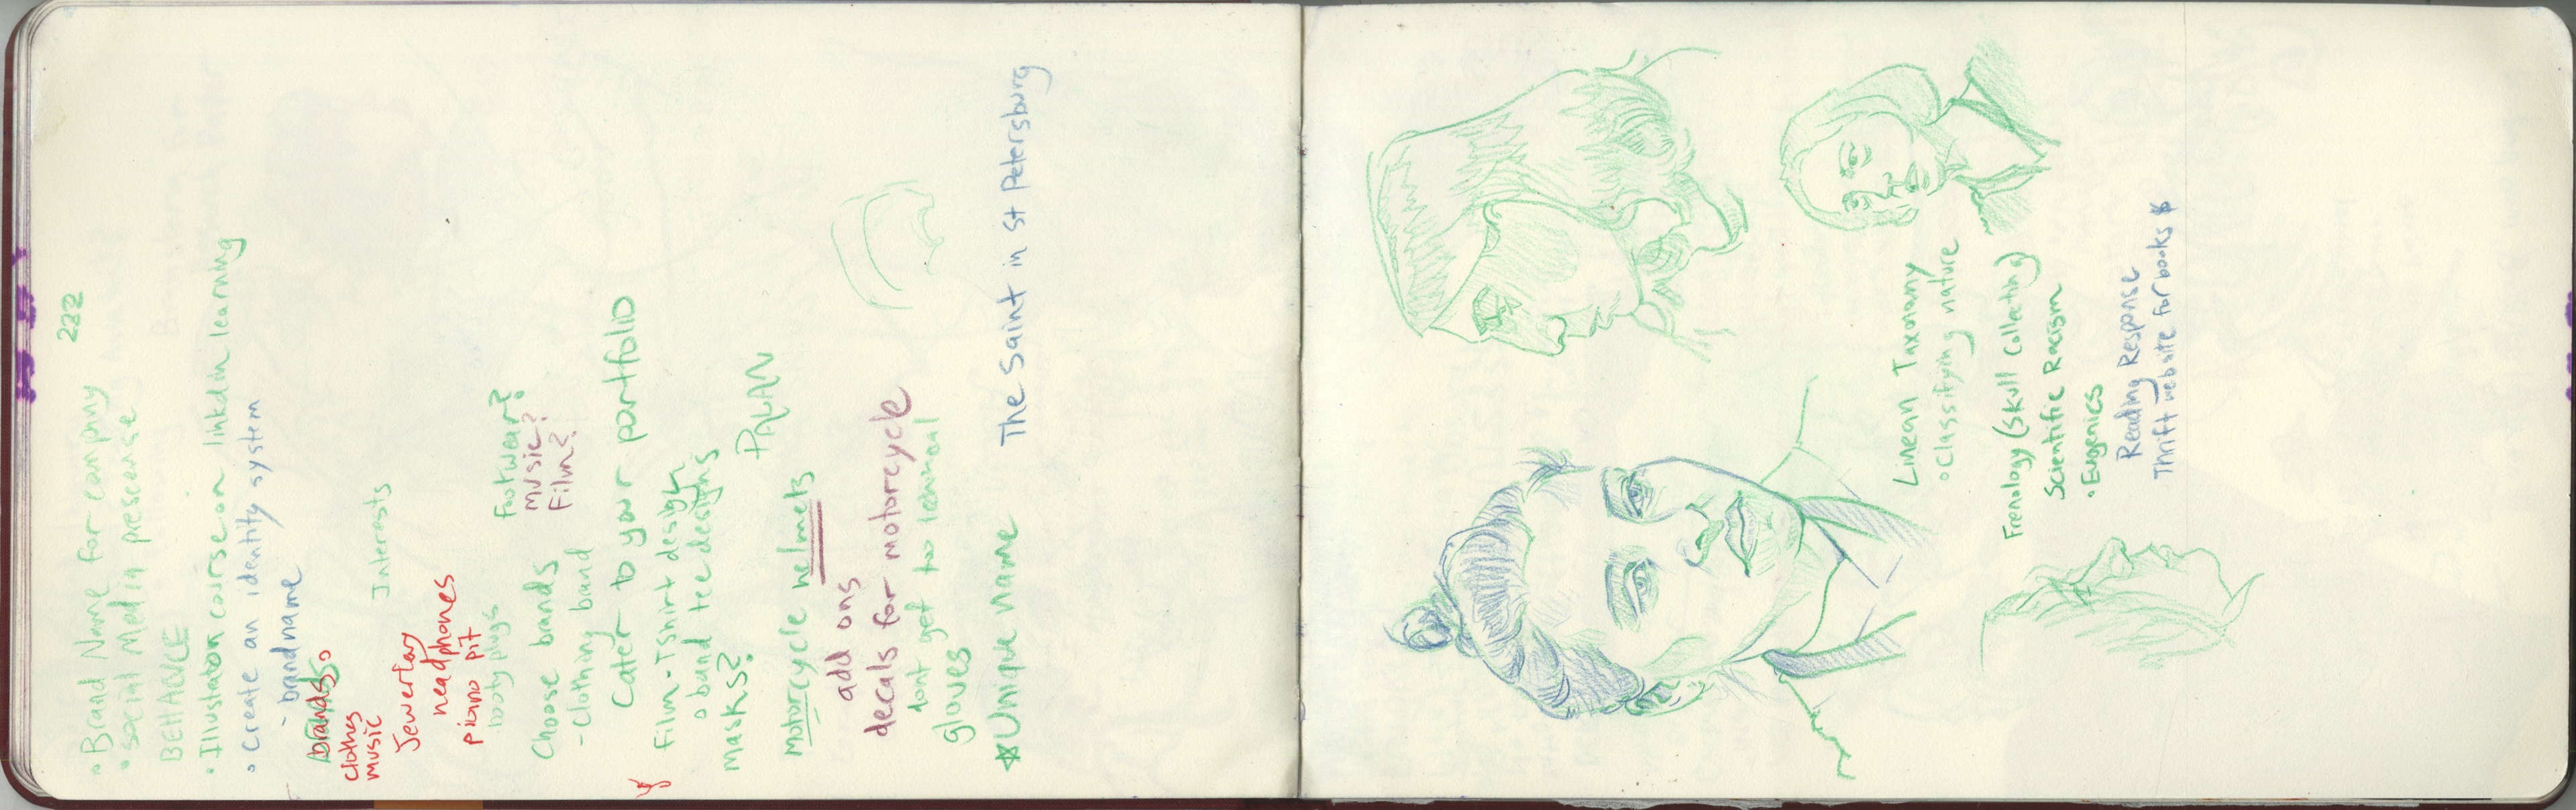 222
• Brand Name for company
• social Media prescense
BEHANCE
• Illustration course on linkdin learning
• Create an identity system
- brand name
brands
clothes
music
Interests
Jewerlay
headphones
piano pit
booty plugs
Footwear?
music?
Film?
Choose brands
- Clothing band
Cater to your portfolio
Film - T shirt design
• band tee designs
masks?
PALAN
Motorcycle helmets
add ons
decals for motorcycle
dont get too technical
gloves
*Unique name
The Saint in st Petersburg
Linean Taxonomy
• Classifying nature
Frenology (skull collecting)
Scientific Racism
• Eugenics
Reading Response
Thrift website for books $